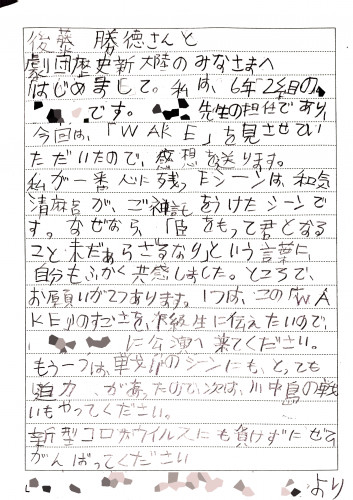 後藤 勝徳さんと
劇団歴史新大陸のみなさまへ
はじめまして。私は、6年2組の
です。 先生の担任であり、
今回は、「WAKE」を見させてい
ただいたので、感想を送ります。
私が一番心に残ったシーンは、和気
清麻呂が、ご神託をうけたシーンで
す。なぜなら、「臣をもって君となる
こと未だあらざるなり」という言葉に、
自分もふかく共感しました。ところで、
お願いが2つあります。1つは、この「WA
KE」のすごさを、下級生に伝えたいので、
に公演へ来てください。
もう一つは、戦のシーンにも、とっても
迫力 があったので次は、川中島の戦
いもやってください。
新型コロナウイルスにも負けずにぜひ
がんばってください
より